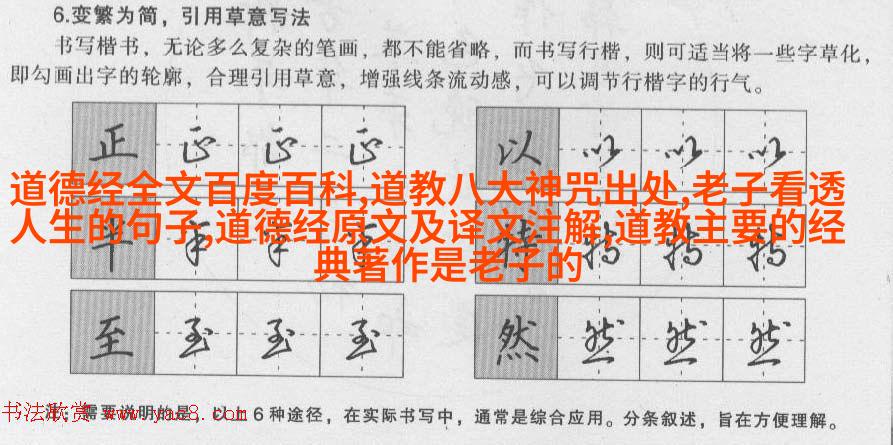 6.变繁为简，引用草意写法
书写楷书，无论多么复杂的笔画，都不能省略，而书写行楷，则可适当将一些字草化，
即勾画出字的轮廓，合理引用草意，增强线条流动感，可以调节行楷字的行气。
正 正 正 正 以 以 以 以
道德经全文百度百科,道教八大神咒出处,老子看透
人生的句子,道德经原文及译文注解,道教主要的经
典著作是老子的
半 转 转 转 转
至 至 至 至 然 然 然 然
注：需要说明的是，以上6种途径，在实际书写中，通常是综合应用。分条叙述，旨在方便理解。
书法欣赏 www.yac8.com